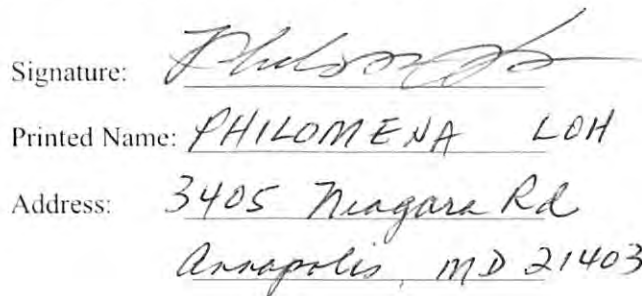 Signature:
Printed Name: PHILOMENA LOH
Address: 3405 Niagara Rd
Annapolis, MD 21403